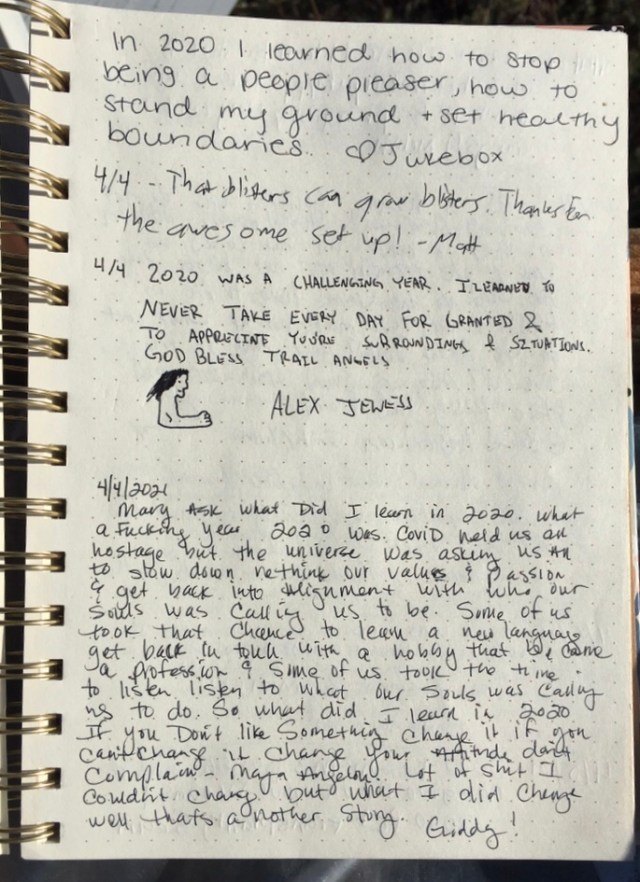 In 2020 I learned how to stop
being a people pleaser, how to
stand my ground + set healthy
boundaries. ♡ Jukebox
4/4 - That blisters can grow blisters. Thanks for
the awesome set up! - Matt
4/4 2020 WAS A CHALLENGING YEAR. I LEARNED TO
NEVER TAKE EVERY DAY FOR GRANTED &
TO APPRECIATE YOURE SURROUNDINGS & SITUATIONS.
GOD BLESS TRAIL ANGELS
ALEX JEWESS
4/4/2021
Mary ASK what Did I learn in 2020. what
a Fucking year 2020 was. COVID held us all
hostage but the universe was asking us All
to slow down, rethink our values & Passion
& get back into Alignment with who our
Souls was Calling us to be. Some of us
took that Chance to learn a new language
get back in touch with a hobby that became
a profession & Some of us took the time
to listen listen to what our Souls was Calling
us to do. So what did I learn in 2020
If you Don't like Something Change it if you
can't Change it Change your Attitude don't
Complain - Maya Angelou. Lot of Shit I
Couldn't Change but what I did Change
well thats a nother Story. Giddy!